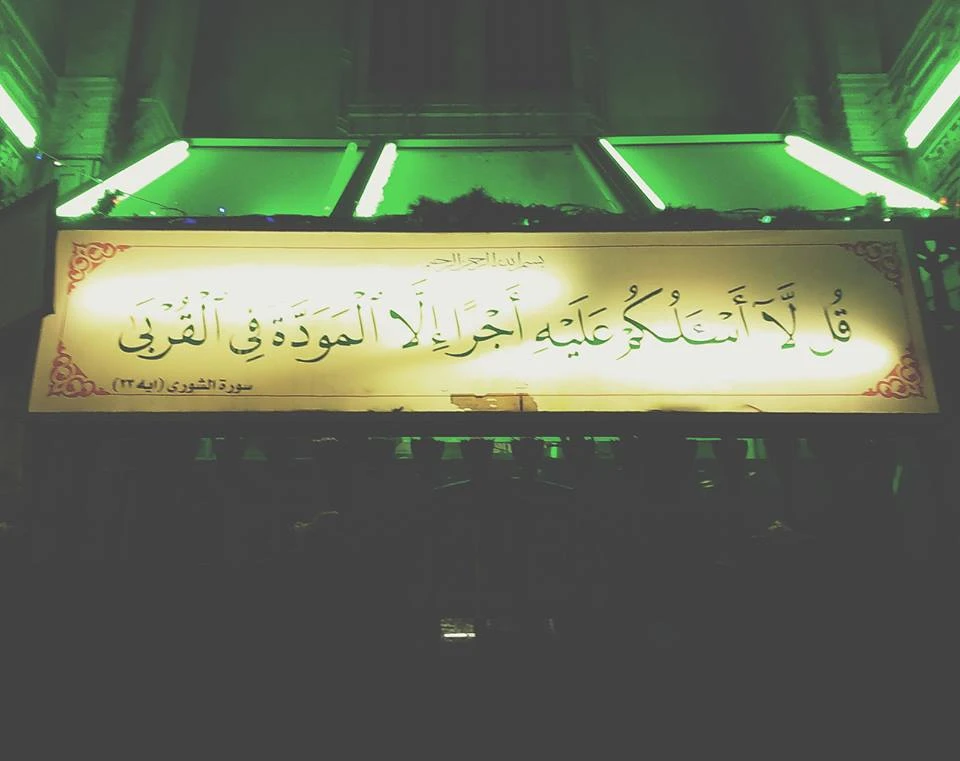 بسم الله الرحمن الرحيم
قُل لَّآ أَسْـَٔلُكُمْ عَلَيْهِ أَجْرًا إِلَّا ٱلْمَوَدَّةَ فِى ٱلْقُرْبَىٰ
سورة الشورى (ايه ٢٣)